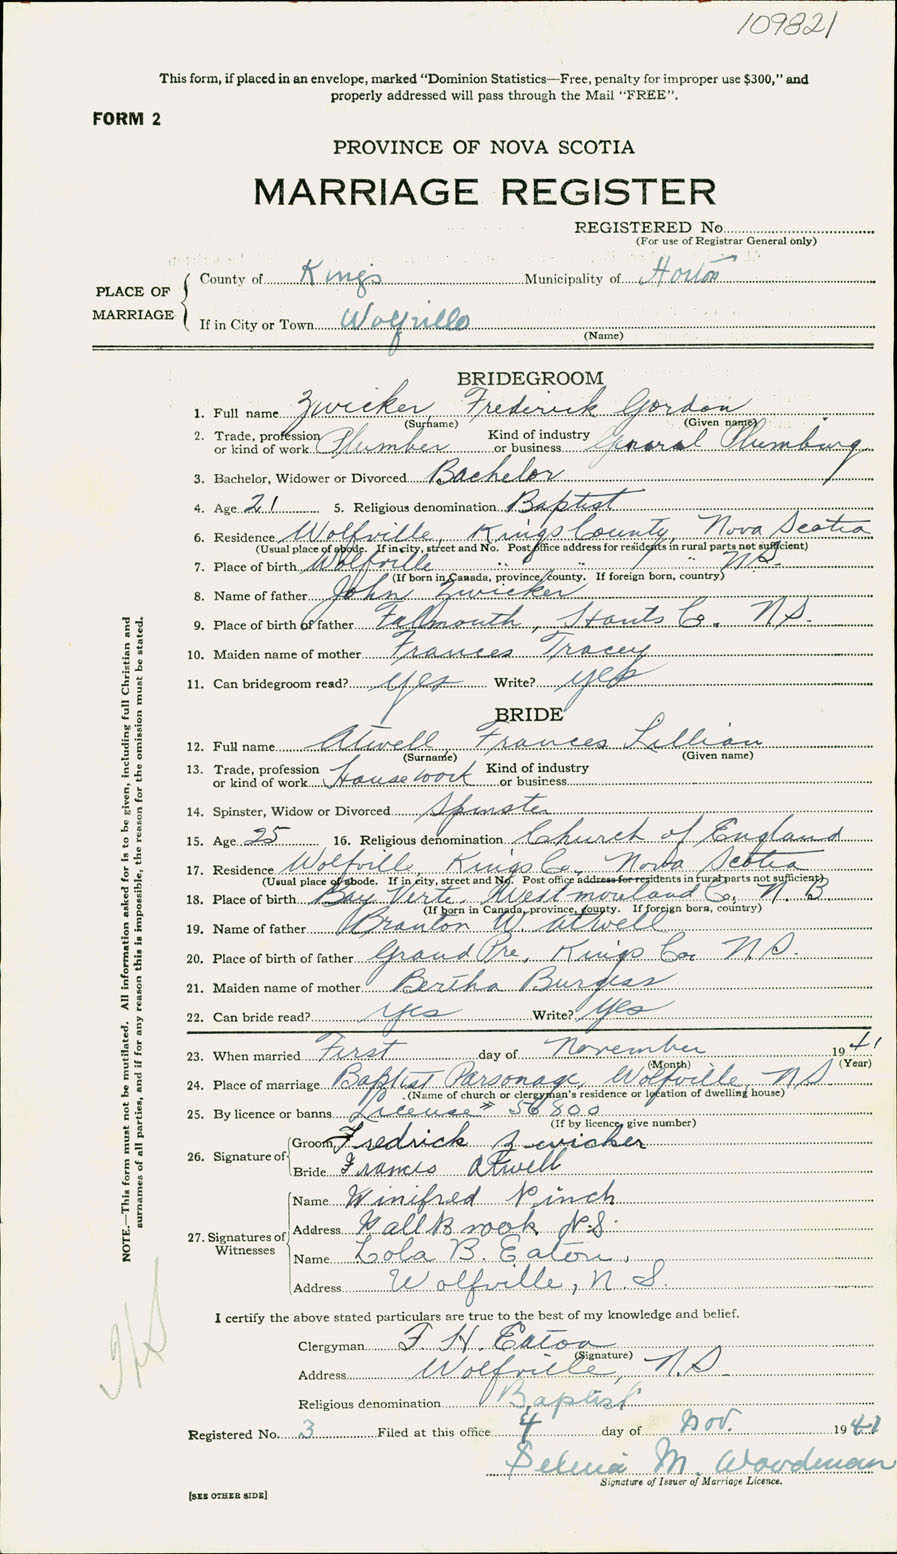 109821
This form, if placed in an envelope, marked "Dominion Statistics—Free, penalty for improper use $300," and
properly addressed will pass through the Mail "FREE".
FORM 2
PROVINCE OF NOVA SCOTIA
MARRIAGE REGISTER
REGISTERED No.
(For use of Registrar General only)
PLACE OF MARRIAGE
County of Kings Municipality of Horton
If in City or Town Wolfville
(Name)
BRIDEGROOM
1. Full name Zwicker Frederick Gordon
(Surname) (Given name)
2. Trade, profession or kind of work Plumber Kind of industry or business General Plumbing
3. Bachelor, Widower or Divorced Bachelor
4. Age 21 5. Religious denomination Baptist
6. Residence Wolfville, Kings County, Nova Scotia
(Usual place of abode. If in city, street and No. Post office address for residents in rural parts not sufficient)
7. Place of birth Wolfville " " " N.S.
(If born in Canada, province, county. If foreign born, country)
8. Name of father John Zwicker
9. Place of birth of father Falmouth, Hants Co. N.S.
10. Maiden name of mother Frances Tracey
11. Can bridegroom read? yes Write? yes
BRIDE
12. Full name Atwell, Frances Lillian
(Surname) (Given name)
13. Trade, profession or kind of work Housework Kind of industry or business
14. Spinster, Widow or Divorced Spinster
15. Age 25 16. Religious denomination Church of England
17. Residence Wolfville, Kings Co. Nova Scotia
(Usual place of abode. If in city, street and No. Post office address for residents in rural parts not sufficient)
18. Place of birth Bay Verte, Westmoreland Co, N.B
(If born in Canada, province, county. If foreign born, country)
19. Name of father W. Atwell
20. Place of birth of father Grand Pre, Kings Co. N.S.
21. Maiden name of mother Bertha Burgess
22. Can bride read? yes Write? yes
23. When married First day of November 1941
(Month) (Year)
24. Place of marriage Baptist Parsonage, Wolfville, N.S
(Name of church or clergyman's residence or location of dwelling house)
25. By licence or banns License # 56800
(If by licence, give number)
26. Signature of Groom Fredrick Zwicker
Bride Frances Atwell
27. Signatures of Witnesses
Name Winifred Pinch
Address Wallbrook N.S.
Name Lola B. Eaton,
Address Wolfville, N.S.
I certify the above stated particulars are true to the best of my knowledge and belief.
Clergyman F. H. Eaton
(Signature)
Address Wolfville, N.S.
Religious denomination Baptist
Registered No. 3 Filed at this office 4 day of Nov. 1941
M. Woodman
Signature of Issuer of Marriage Licence.
[SEE OTHER SIDE]
NOTE.—This form must not be mutilated. All information asked for is to be given, including full Christian and
surnames of all parties, and if for any reason this is impossible, the reason for the omission must be stated.